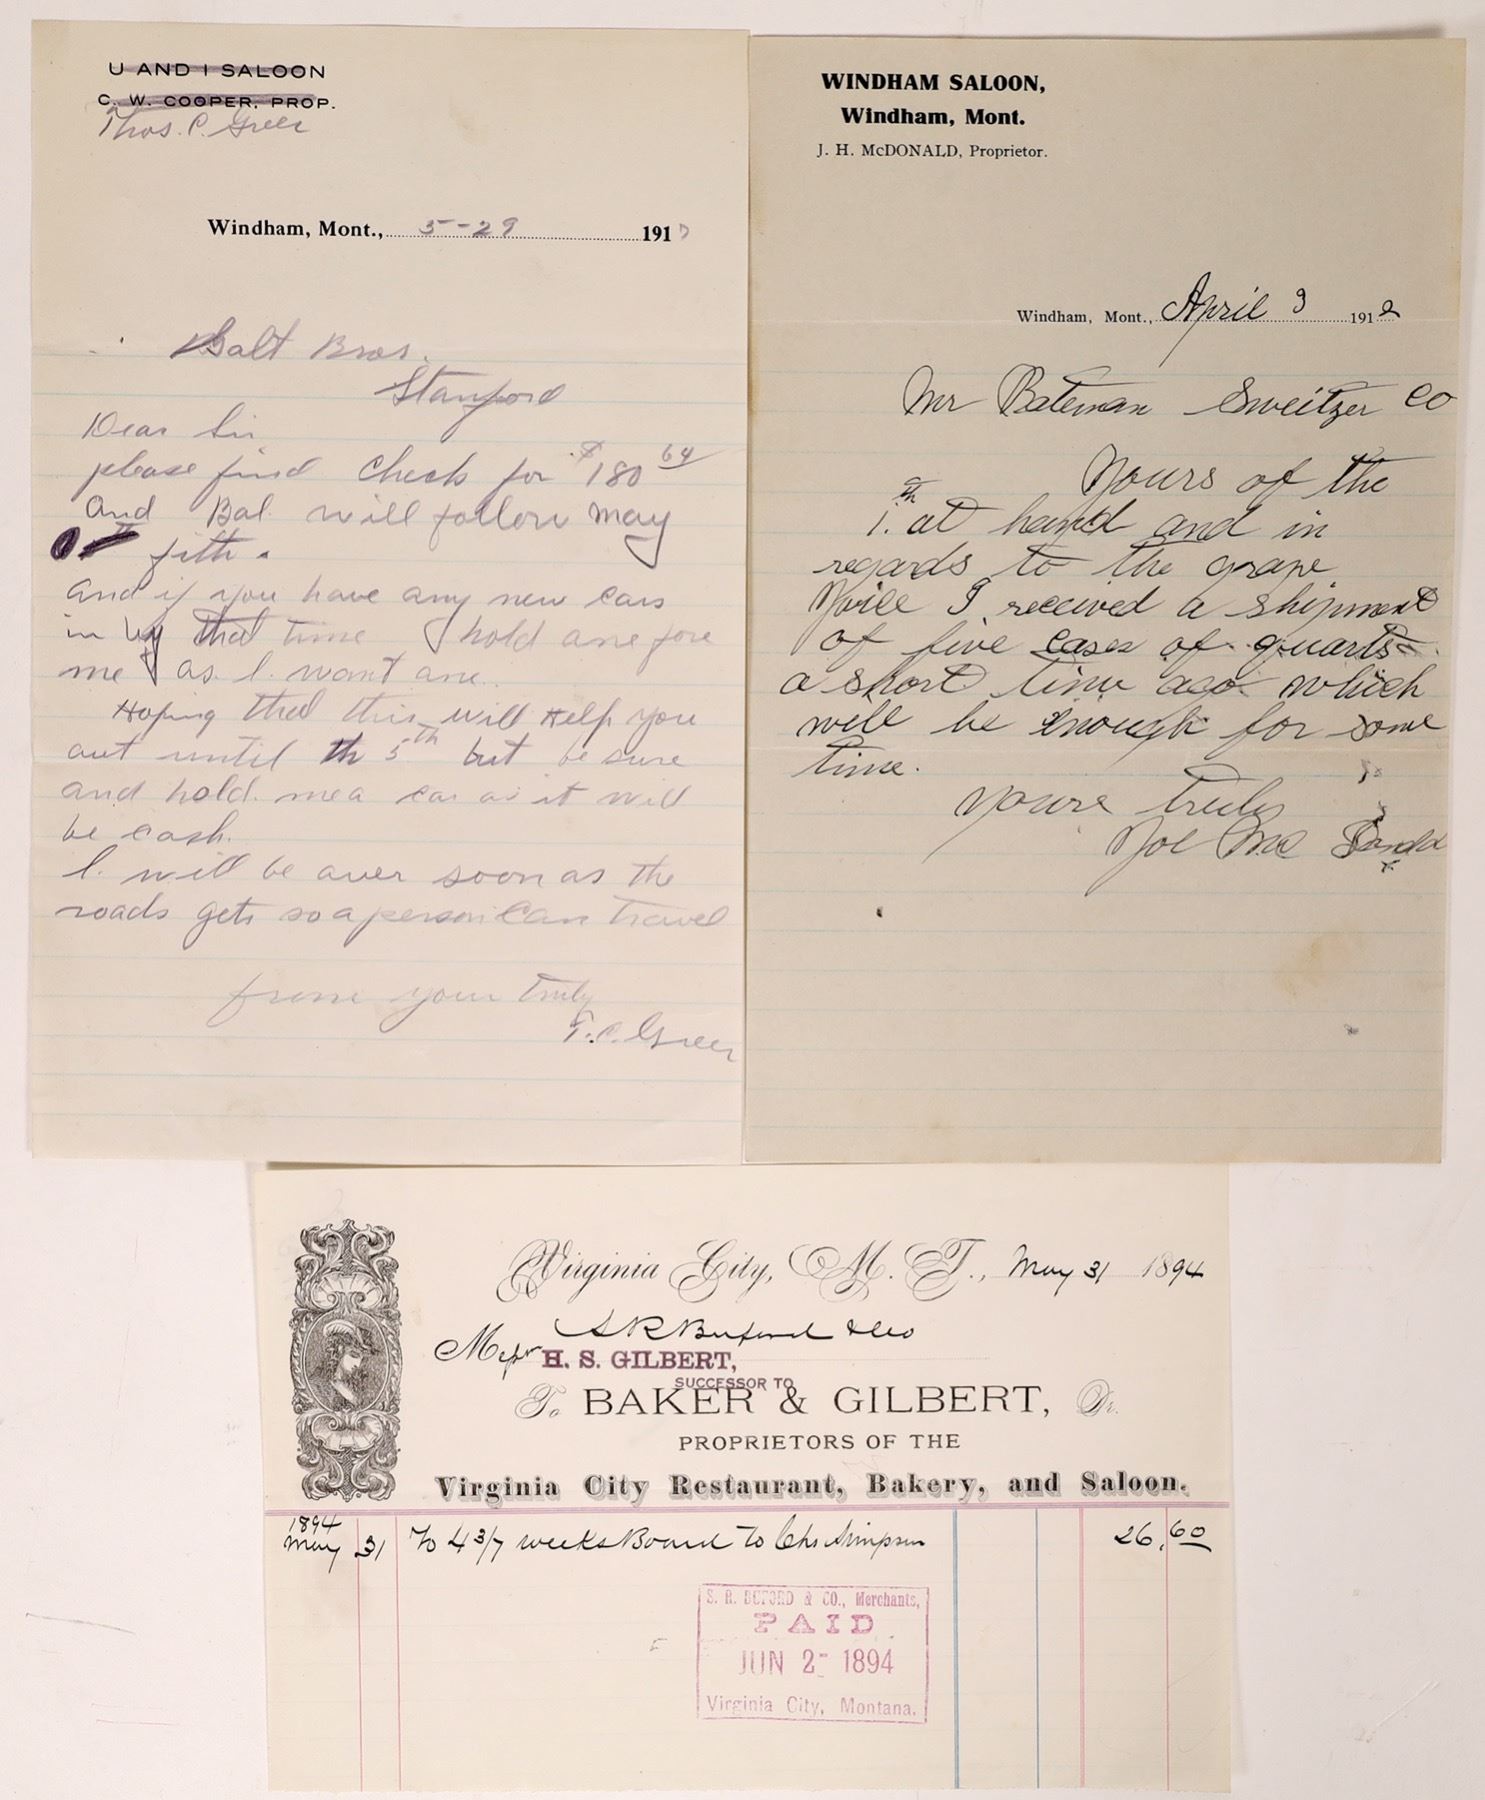 U AND I SALOON
C. W. COOPER, PROP.
Thos. C. Greer
Windham, Mont., 5-29 191
Galt Bros.
Stanford
Dear Sir
please find Check for $180 64
and Bal. will follow may
fith.
and if you have any new cars
in by that time hold one fore
me as I. want one.
Hoping that this will Help you
out until th 5th but be sure
and hold me a car as it will
be cash.
I. will be over soon as the
roads gets so a person Can travel
from your Truly
T. C. Greer
WINDHAM SALOON,
Windham, Mont.
J. H. McDONALD, Proprietor.
Windham, Mont., April 3 1912
Mr Bateman Sweitzer Co
Yours of the
1.th at hand and in
regards to the grape
I received a shipment
of five cases of quarts
a short time ago which
will be enough for some
time.
Yours truly
Mc
Virginia City, M. T., May 31 1894
S R Buford & Co
H. S. GILBERT,
SUCCESSOR TO
To BAKER & GILBERT, Dr.
PROPRIETORS OF THE
Virginia City Restaurant, Bakery, and Saloon.
1894
May 31 To 4 3/7 weeks Board to Chs Simpson 26.60
S. R. BUFORD & CO., Merchants,
PAID
JUN 2- 1894
Virginia City, Montana.